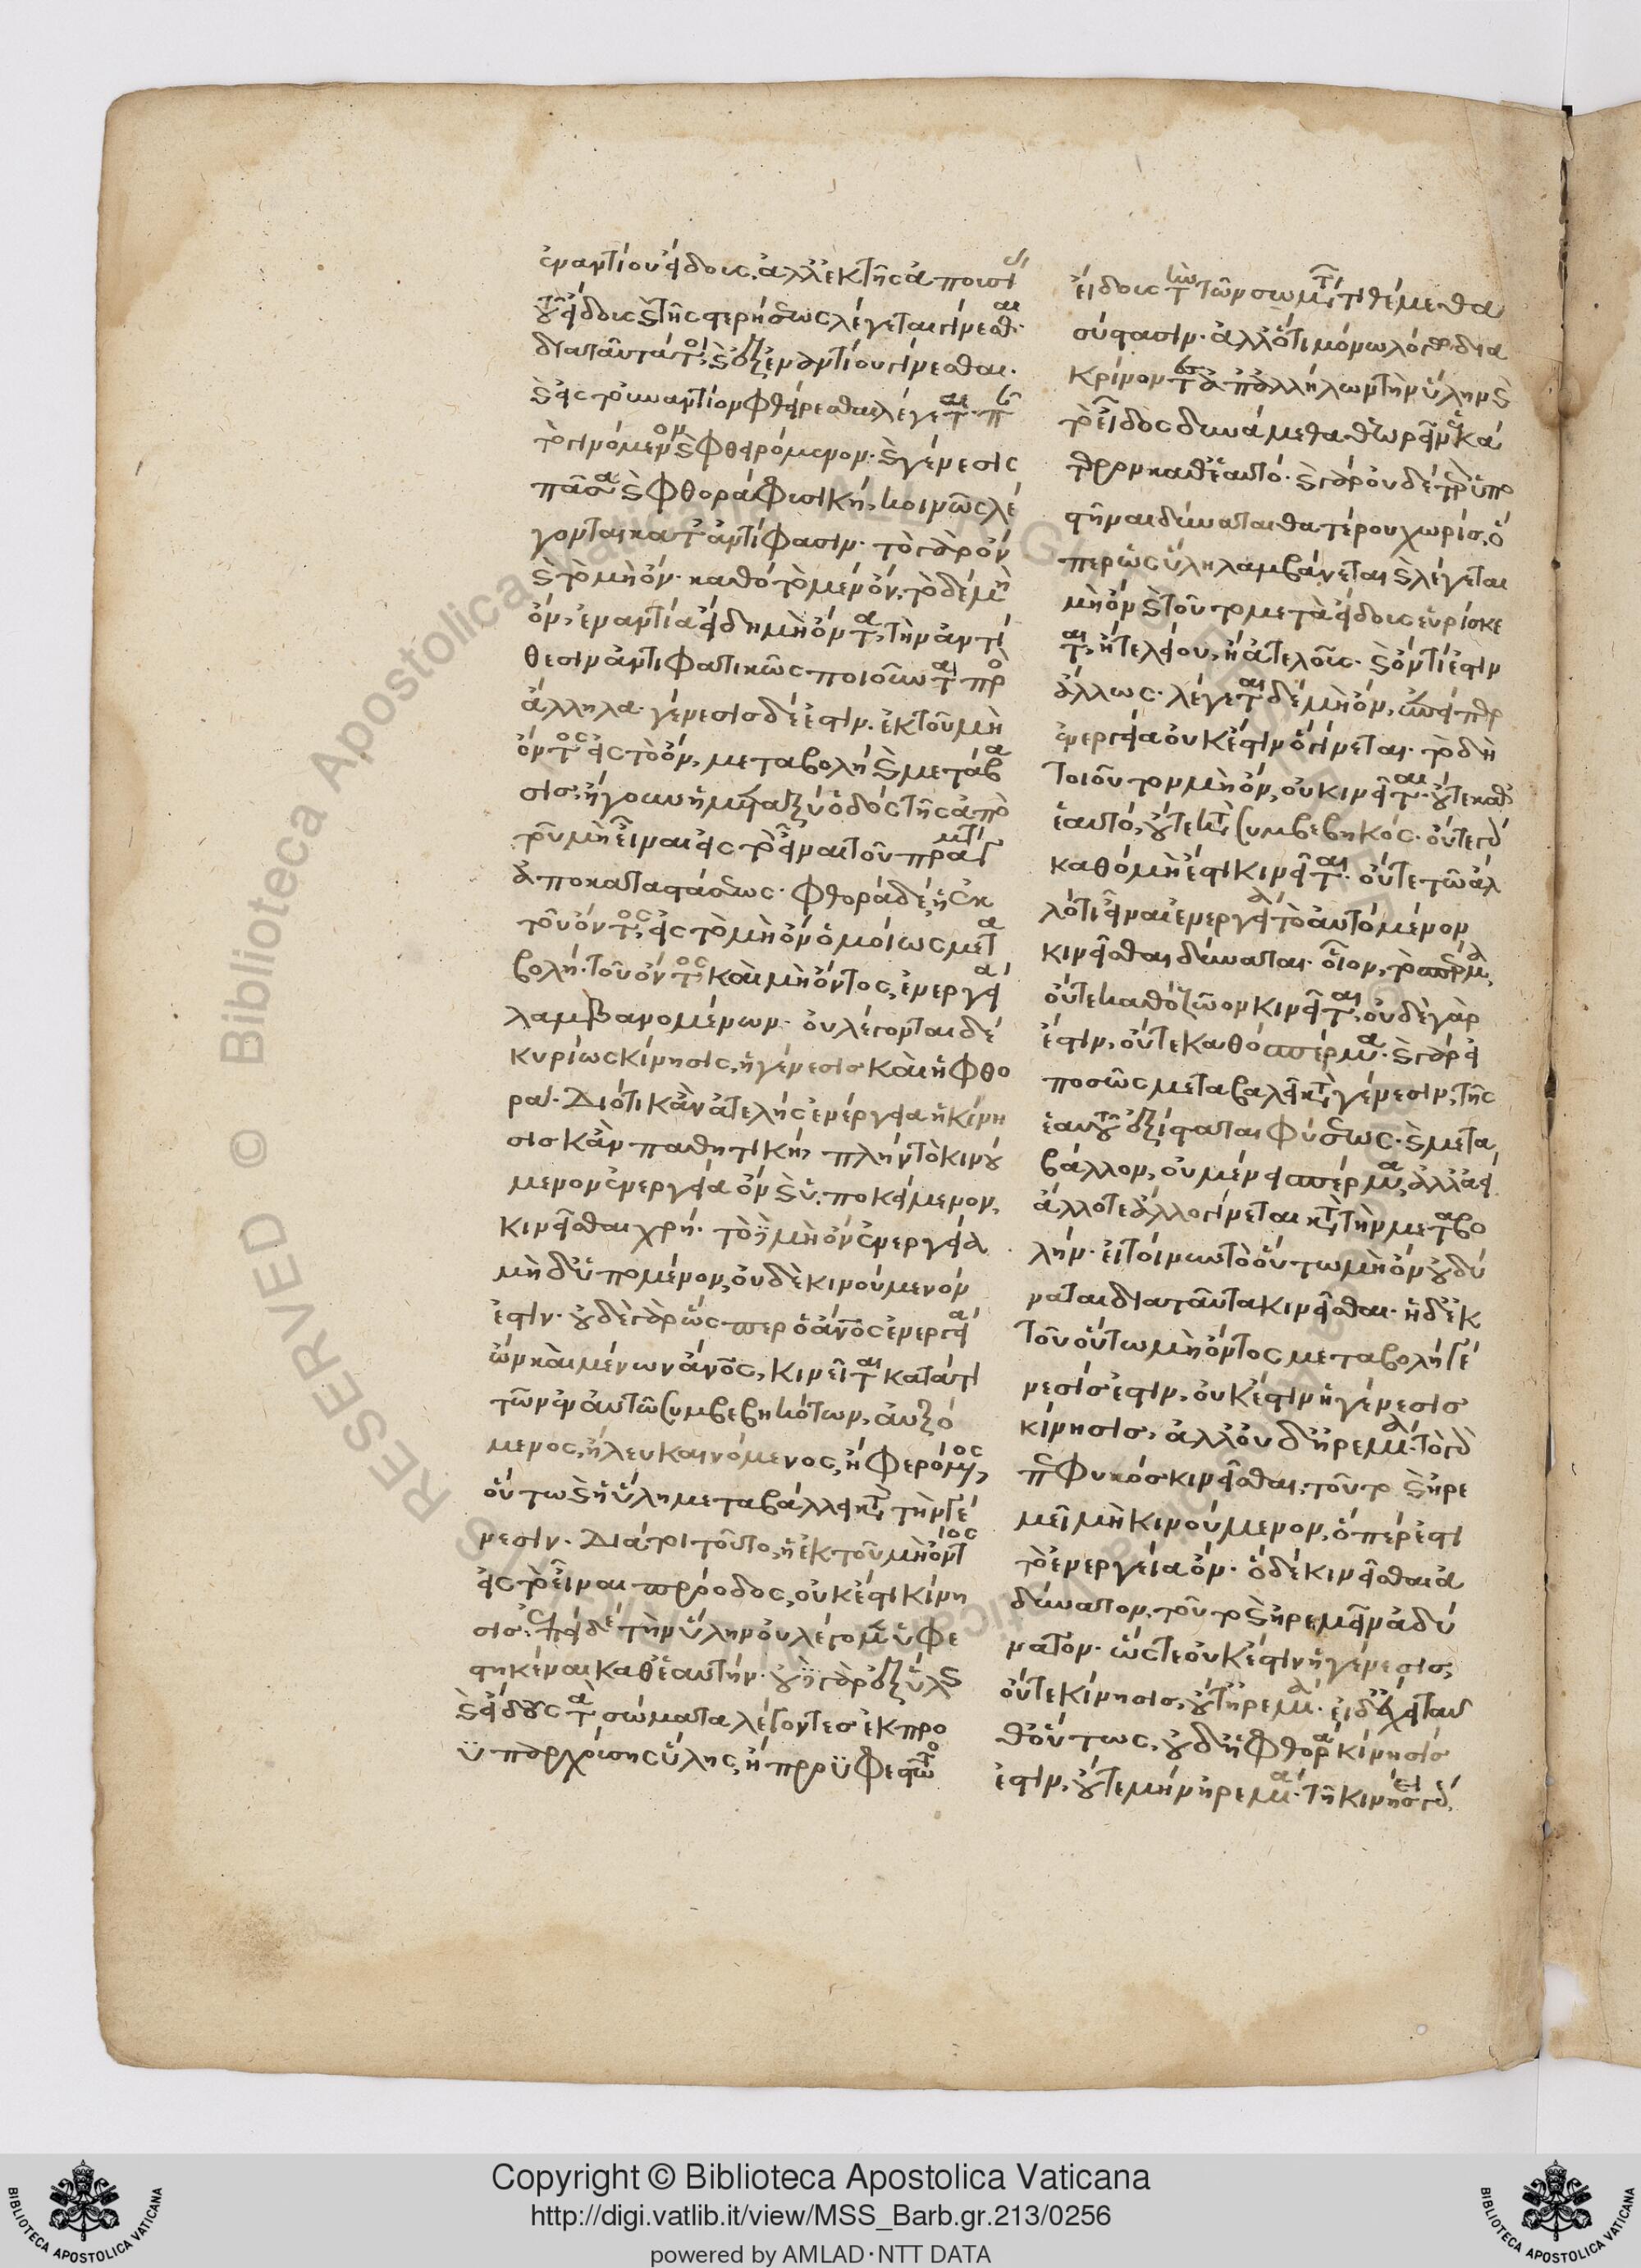 ἐναντίου εἴδους, ἀλλ' ἐκ τῆς ἀποιοῦ
εἴδους καὶ στερήσεως λέγεται γίνεσθαι·
διὰ ταῦτα τοι καὶ ἐξ ἐναντίου γίνεσθαι·
καὶ εἰς τοὐναντίον φθείρεσθαι λέγεται
τὸ γινόμενον καὶ φθειρόμενον· καὶ γένεσις
πᾶσα καὶ φθορὰ φυσικὴ, κοινῶς λέ
γονται κατ' ἀντίφασιν· τὸ γὰρ ὂν
καὶ τὸ μὴ ὄν· καθὸ τὸ μὲν ὄν, τὸ δὲ μὴ
ὄν, ἐναντία εἴδη μὴ ὄντα, τὴν ἀντί
θεσιν ἀντιφατικῶς ποιοῦνται πρὸς
ἄλληλα· γένεσις δέ ἐστιν ἐκ τοῦ μὴ
ὄντος εἰς τὸ ὄν, μεταβολὴ καὶ μετάβα
σις, ἤγουν ἡ μεταξὺ ὁδὸς τῆς ἀπὸ
τοῦ μὴ εἶναι εἰς τὸ εἶναι τοῦ πράγματος
ἀποκαταστάσεως· φθορὰ δὲ, ἡ ἐκ
τοῦ ὄντος εἰς τὸ μὴ ὂν ὁμοίως μετα
βολή· τοῦ ὄντος καὶ μὴ ὄντος, ἐνεργείᾳ
λαμβανομένων· οὐ λέγονται δὲ
κυρίως κίνησις, ἡ γένεσις καὶ ἡ φθο
ρά· Διότι κἂν ἀτελὴς ἐνέργεια ἡ κίνη
σις κἂν παθητικὴ, πλὴν τὸ κινού
μενον ἐνεργείᾳ ὂν καὶ ὑποκείμενον,
κινεῖσθαι χρή· τὸ μὴ ὂν ἐνεργείᾳ
μηδ' ὑπομένον, οὐδὲ κινούμενόν
ἐστιν· οὐδὲ γὰρ ὥσπερ ὁ ἄνος ἐνεργείᾳ
ὢν καὶ μένων ἄνος, κινεῖται κατά τι
τῶν ἐν αὐτῷ συμβεβηκότων, αὐξό
μενος, ἢ λευκαινόμενος, ἢ φερόμενος,
οὕτω καὶ ἡ ὕλη μεταβάλλει κατὰ τὴν γέ
νεσιν· Διά τοι τοῦτο, ἡ ἐκ τοῦ μὴ ὄντος
εἰς τὸ εἶναι πρόοδος, οὐκ ἔστι κίνη
σις· ἐπεὶ δὲ τὴν ὕλην οὐ λέγομεν ὑφε
στηκέναι καθ' ἑαυτήν· οὐ γὰρ ἐξ ὕλης
καὶ εἴδους τὰ σώματα λέγοντες ἐκ προ
ϋπαρχούσης ὕλης, ἢ προϋφεστῶτος
εἴδους τὴν τῶν σωμάτων τιθέμεθα
σύστασιν· ἀλλ' ὅτι μόνῳ λόγῳ δια
κρίνοντες ἀπ' ἀλλήλων τὴν ὕλην καὶ
τὸ εἶδος δυνάμεθα θεωρεῖν ἑκά
τερον καθ' ἑαυτό· καὶ γὰρ οὐδέτερον ὑπο
στῆναι δύναται θατέρου χωρίς, ὅ
περ ὡς ὕλη λαμβάνεται καὶ λέγεται
μὴ ὄν· καὶ τοῦτο μετὰ εἴδους εὑρίσκε
ται, ἢ τελείου, ἢ ἀτελοῦς· καὶ ὄν τί ἐστιν
ἄλλως· λέγεται δὲ μὴ ὄν,
ἐνεργείᾳ οὐκ ἔστιν ὃ γίνεται· τὸ δὴ
τοιοῦτον μὴ ὄν, οὐ κινεῖται· οὔτε καθ'
ἑαυτό, οὔτε κατὰ συμβεβηκός· οὔτε γὰρ
καθὸ μὴ ἔστι κινεῖται· οὔτε τῷ ἄλ
λό τι εἶναι ἐνεργείᾳ τὸ αὐτὸ μένον
κινεῖσθαι δύναται· οἷον, τὸ σπέρμα,
οὔτε καθὸ ζῷον κινεῖται, οὐδὲ γάρ
ἐστιν, οὔτε καθὸ σπέρμα· καὶ γὰρ εἰ
ποσῶς μεταβάλῃ κατὰ γένεσιν, τῆς
ἑαυτοῦ ἐξίσταται φύσεως· καὶ μετα
βάλλον, οὐ μένει σπέρμα, ἀλλ' ἀεὶ
ἄλλοτε ἄλλο γίνεται κατὰ τὴν μεταβο
λήν· εἰ τοίνυν τὸ οὕτω μὴ ὂν οὐ δύ
ναται διὰ ταῦτα κινεῖσθαι· ἡ δ' ἐκ
τοῦ οὕτω μὴ ὄντος μεταβολὴ γέ
νεσίς ἐστιν, οὐκ ἔστιν ἡ γένεσις
κίνησις, ἀλλ' οὐδ' ἠρεμία· τὸ γὰρ
πεφυκὸς κινεῖσθαι, τοῦτο καὶ ἠρε
μεῖ μὴ κινούμενον, ὅπερ ἐστὶ
τὸ ἐνεργείᾳ ὄν· ὃ δὲ κινεῖσθαι ἀ
δύνατον, τοῦτο καὶ ἠρεμεῖν ἀδύ
νατον· ὥστε οὐκ ἔστιν ἡ γένεσις,
οὔτε κίνησις, οὔτ' ἠρεμία·
οὕτως, οὐδ' ἡ φθορὰ κίνησίς
ἐστιν, οὔτε μὴν ἠρεμία· τῇ κινήσει γὰρ
Copyright © Biblioteca Apostolica Vaticana
http://digi.vatlib.it/view/MSS_Barb.gr.213/0256
powered by AMLAD·NTT DATA
BIBLIOTECA APOSTOLICA VATICANA
BIBLIOTECA APOSTOLICA VATICANA